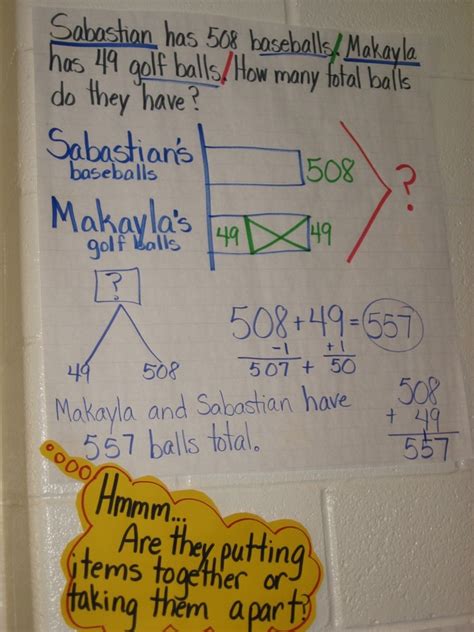 Sabastian has 508 baseballs. / Makayla
has 49 golf balls. / How many total balls
do they have?
Sabastian's
baseballs
508
Makayla's
golf balls
49
49
?
?
49 508
508 + 49 = 557
-1 +1
507 + 50
Makayla and Sabastian have
557 balls total.
508
+ 49
557
Hmmm...
Are they putting
items together or
taking them apart?